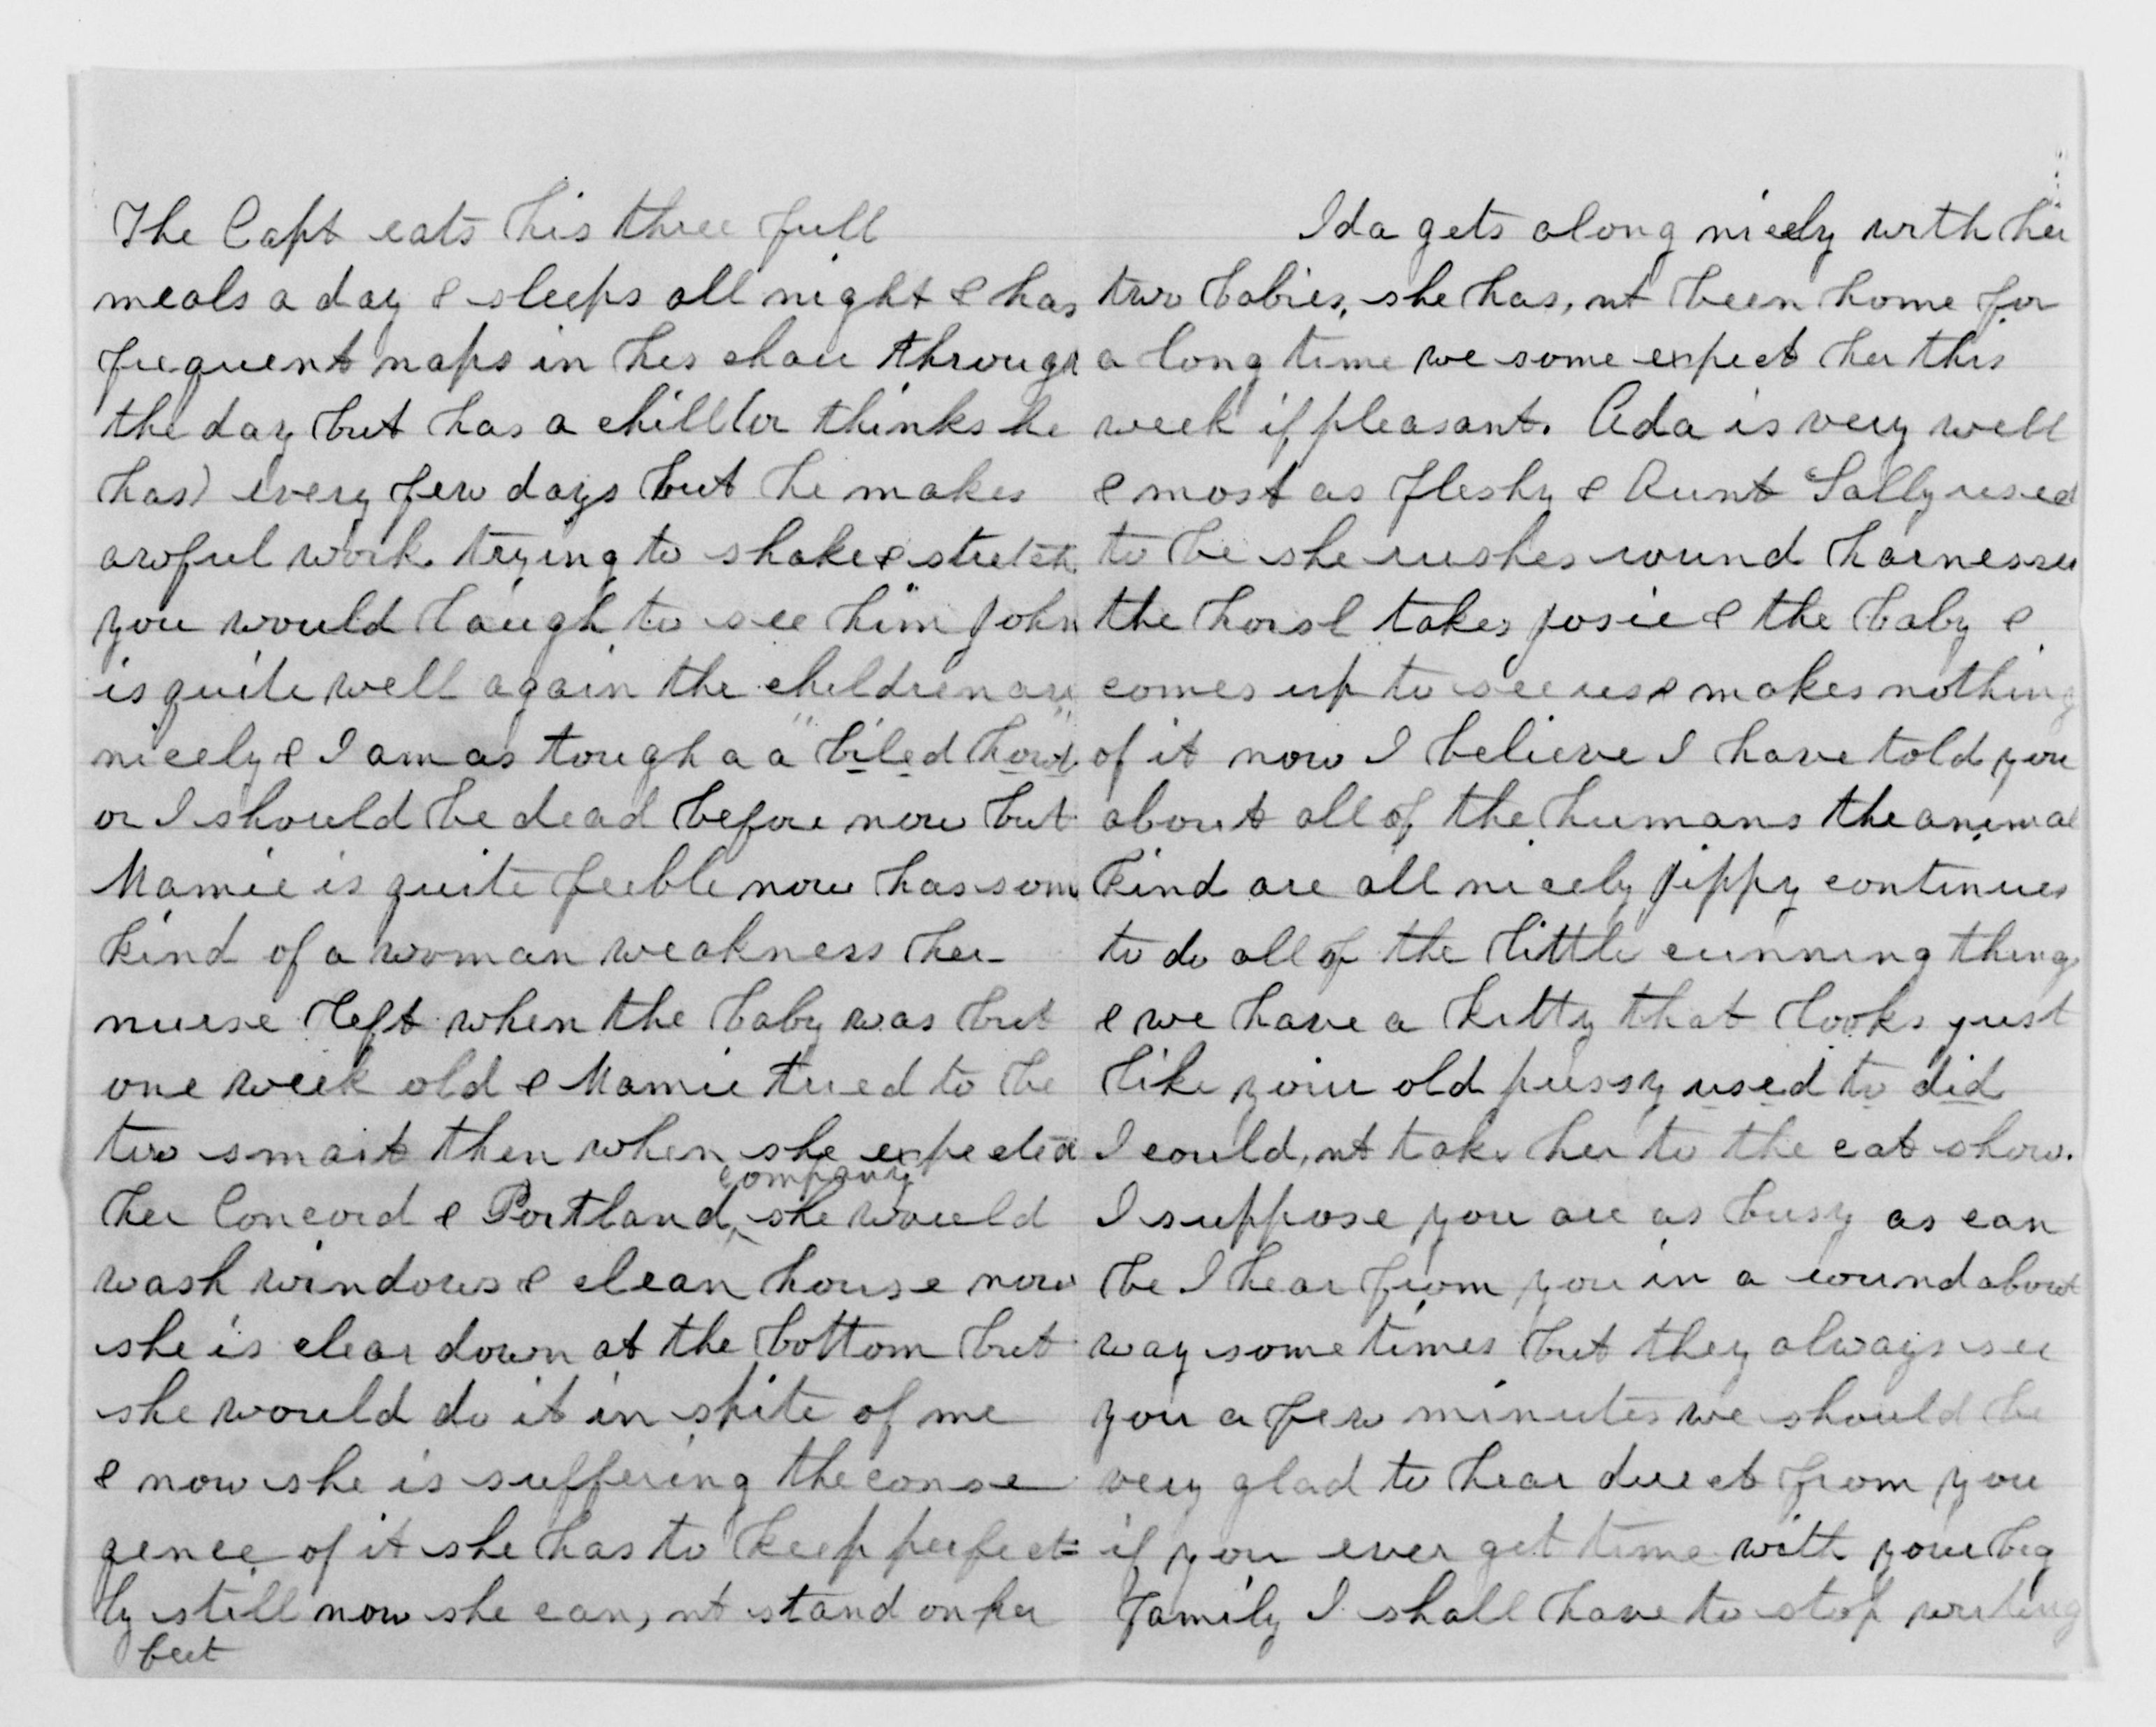 The Capt eats his three full
meals a day & sleeps all night & has
frequent naps in his chair through
the day but has a chill (or thinks he
has) every few days but he makes
awful work trying to shake & stretch
you would laugh to see him John
is quite well again the children are
nicely & I am as tough a a "biled howl"
or I should be dead before now but
Mamie is quite feeble now has some
kind of a woman weakness her
nurse left when the baby was but
one week old & Mamie tried to be
two smart then when she expected
her Concord & Portland company she would
wash windows & clean house now
she is clear down at the bottom but
she would do it in spite of me
& now she is suffering the conse
qence of it she has to keep perfect=
ly still now she can,nt stand on her
feet
Ida gets along nicely with her
two babies, she has,nt been home for
a long time we some expect her this
week if pleasant. Ada is very well
& most as fleshy & Aunt Sally used
to be she rushes round harnesses
the horse takes Josie & the baby &
comes up to see us & makes nothing
of it now I believe I have told you
about all of the humans the animal
kind are all nicely Jippy continues
to do all of the little cunning things
& we have a kitty that looks just
like your old pussy used to did
I could,nt take her to the cat show.
I suppose you are as busy as can
be I hear from you in a roundabout
way some times but they always see
you a few minutes we should be
very glad to hear direct from you
if you ever get time with your big
family I shall have to stop writing